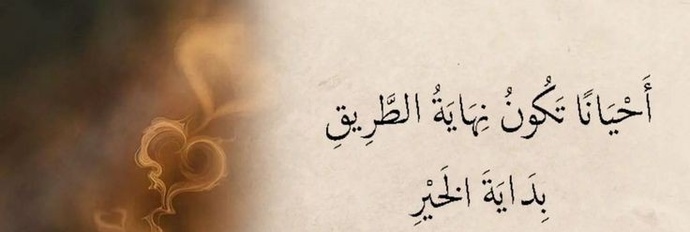 أَحْيَانًا تَكُونُ نِهَايَةُ الطَّرِيقِ
بِدَايَةَ الْخَيْرِ